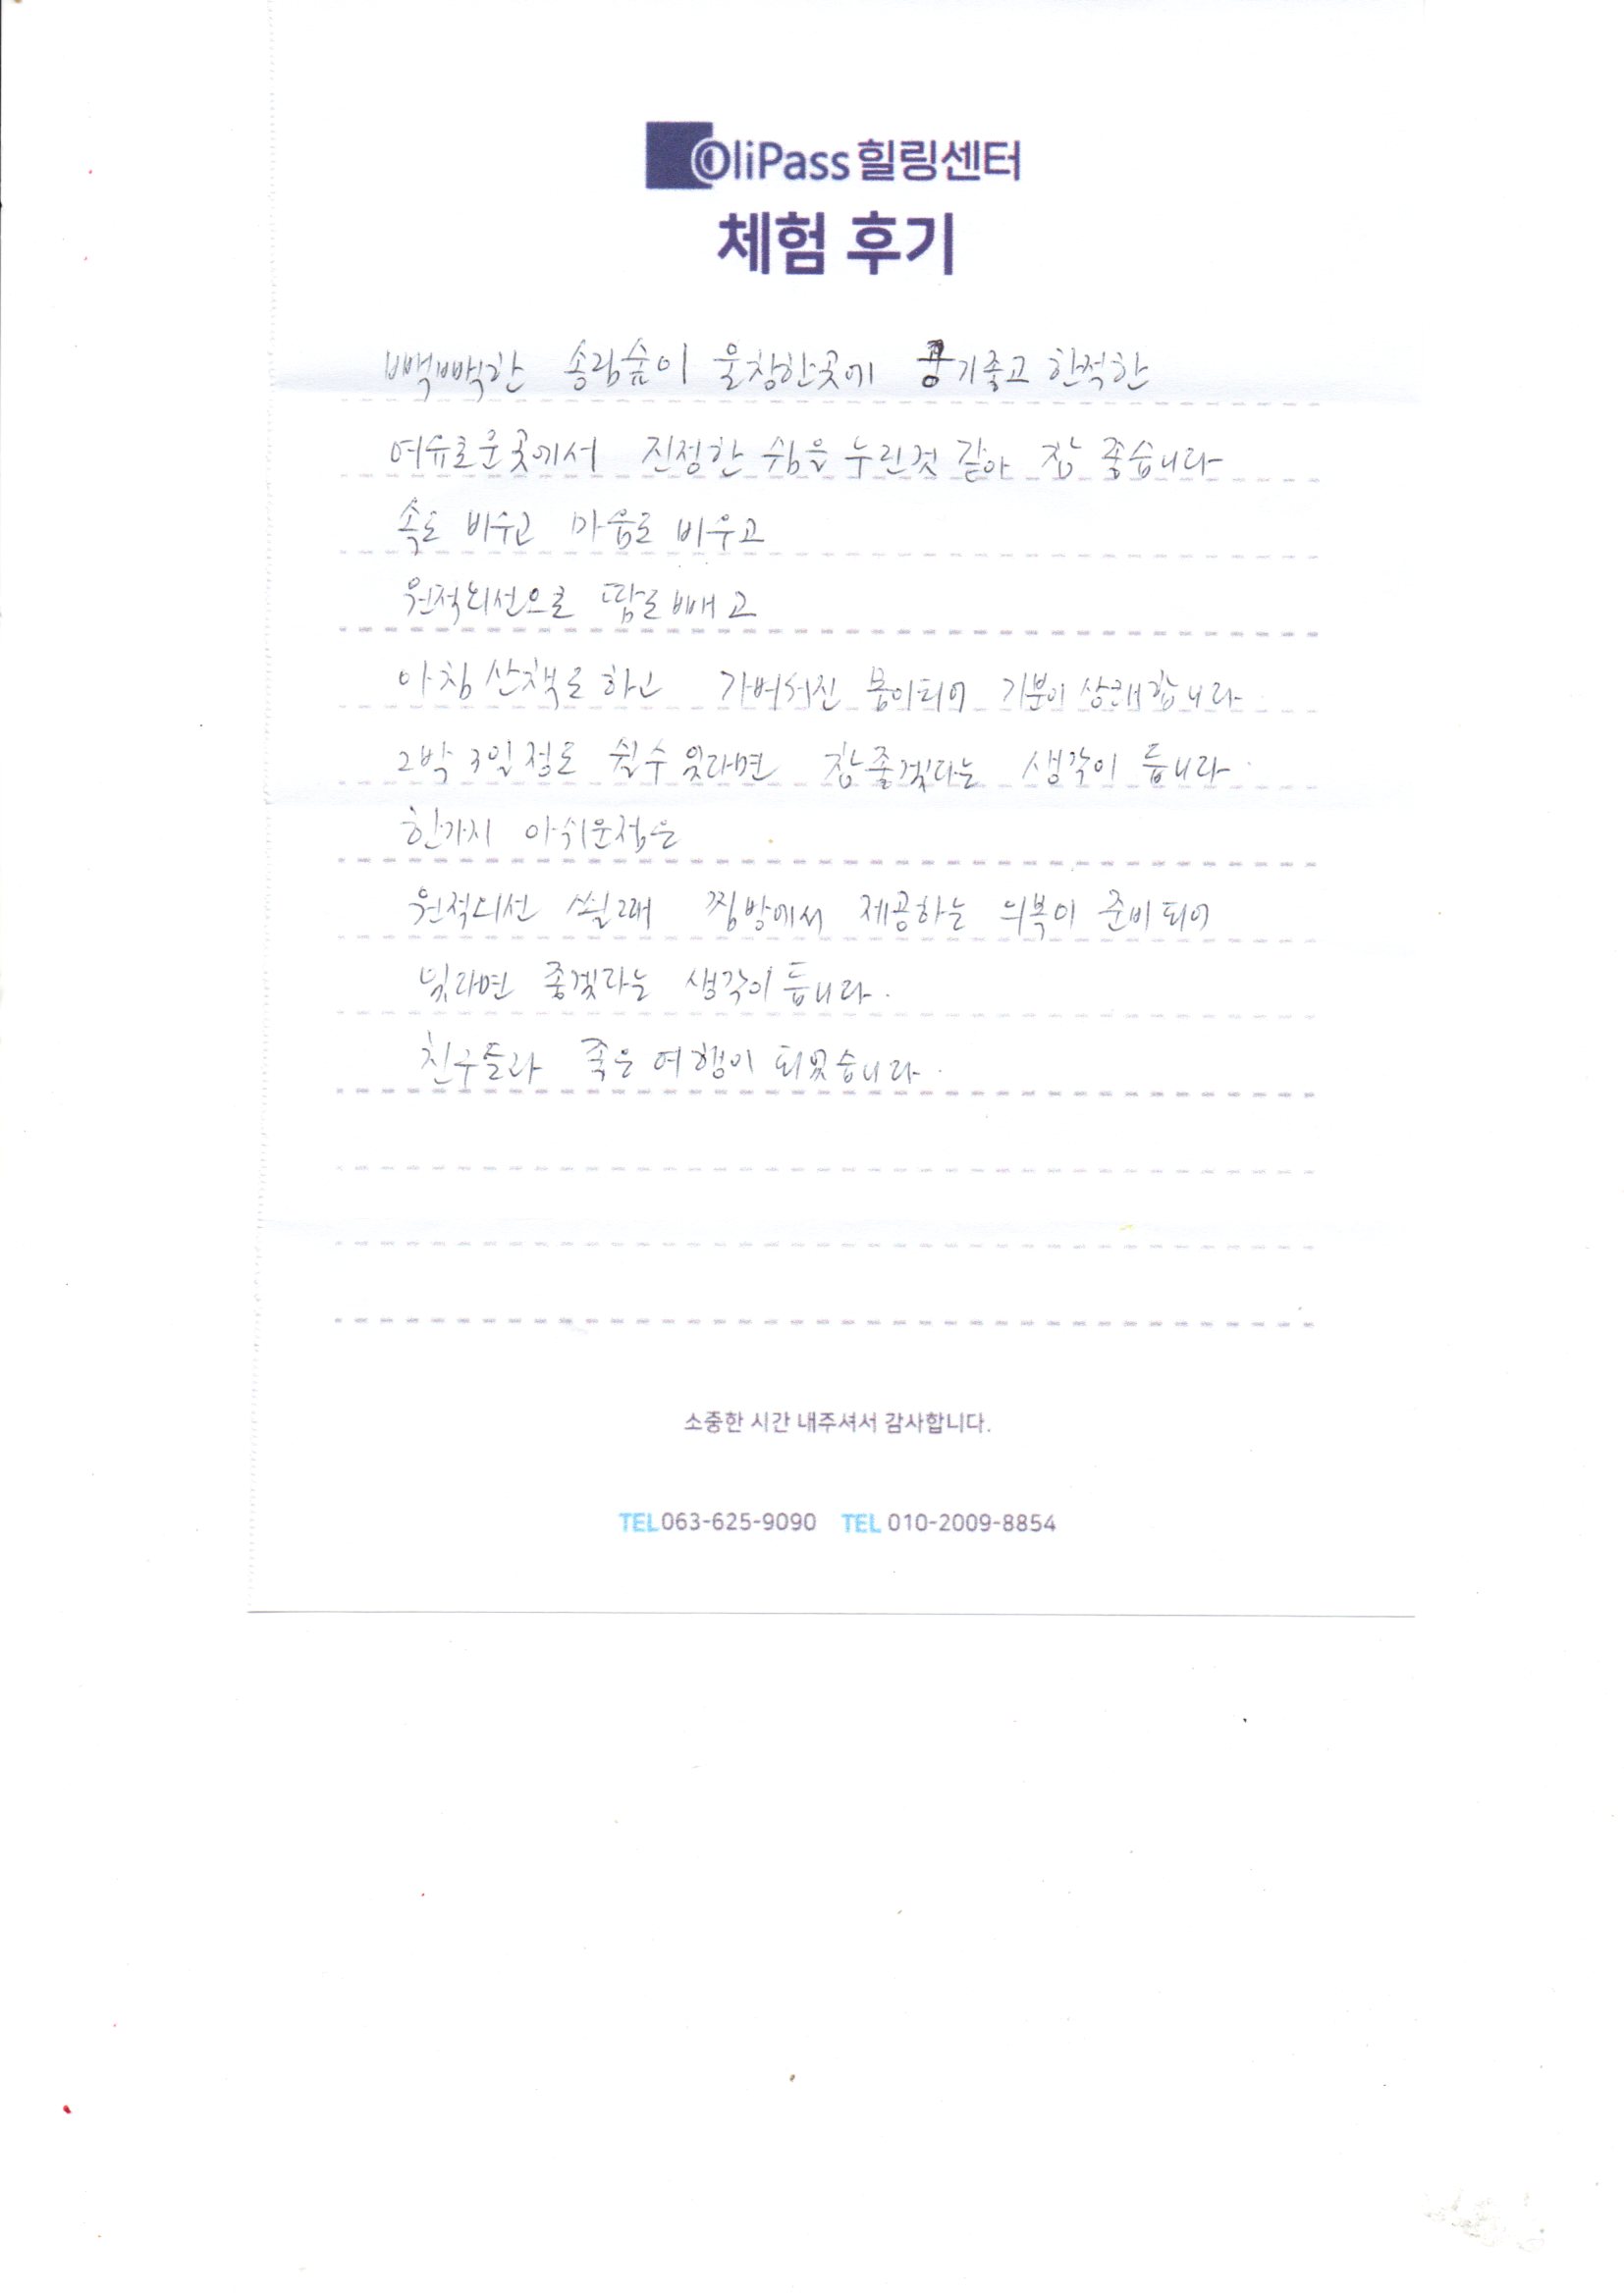 OliPass 힐링센터
체험 후기
빽빽한 송림숲이 울창한곳에 공기좋고 한적한
여유로운곳에서 진정한 쉼을 누린것 같아 참 좋습니다
속도 비우고 마음도 비우고
원적외선으로 땀도 빼고
아침 산책도 하고 가벼워진 몸이되어 기분이 상쾌합니다
2박 3일정도 쉴수 있다면 참좋겠다는 생각이 듭니다.
한가지 아쉬운점은
원적외선 쐴때 찜방에서 제공하는 의복이 준비되어
있다면 좋겠다는 생각이 듭니다.
친구들과 좋은 여행이 되었습니다.
소중한 시간 내주셔서 감사합니다.
TEL 063-625-9090 TEL 010-2009-8854